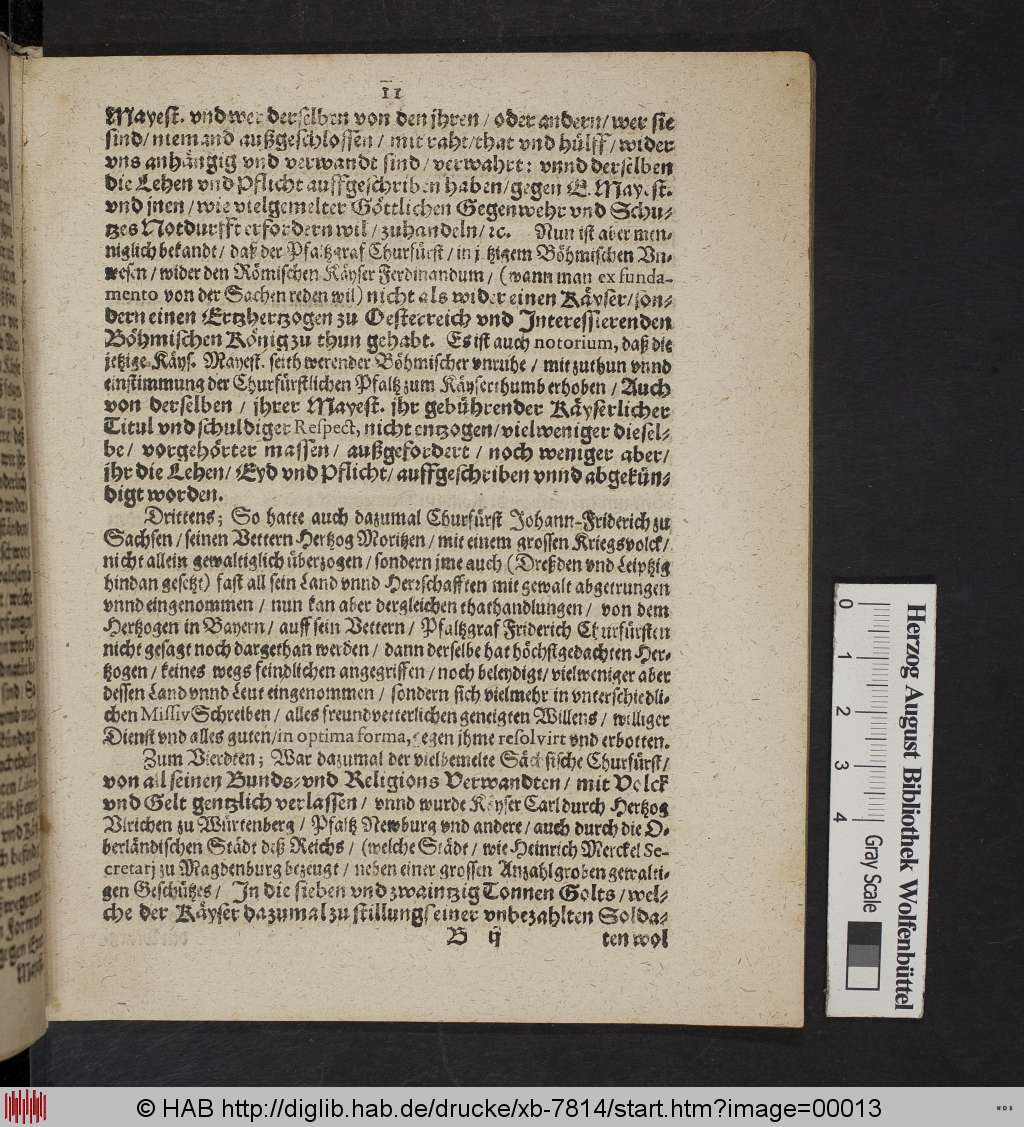 11
Mayest. vnd wer derselben von den jhren / oder andern / wer sie
sind / niemand außgeschlossen / mit raht / that vnd hülff / wider
vns anhängig vnd verwandt sind / verwahrt: vnnd derselben
die Lehen vnd Pflicht auffgeschriben haben / gegen E. Mayest.
vnd jnen / wie vielgemelter Göttlichen Gegenwehr vnd Schu-
tzes Notdurfft erfordern wil / zuhandeln / ꝛc. Nun ist aber men-
niglich bekandt / daß der Pfaltzgraf Churfürst / in jetzigem Böhmischen Vn-
wesen / wider den Römischen Käyser Ferdinandum / (wann man ex funda-
mento von der Sachen reden wil) nicht als wider einen Käyser / son-
dern einen Ertzhertzogen zu Oesterreich vnd Interessierenden
Böhmischen König zu thun gehabt. Es ist auch notorium, daß die
jetzige Käys. Mayest. seith werender Böhmischer vnruhe / mit zuthun vnnd
einstimmung der Churfürstlichen Pfaltz zum Käyserthumb erhoben / Auch
von derselben / jhrer Mayest. jhr gebührender Käyserlicher
Titul vnd schuldiger Respect, nicht entzogen / viel weniger diesel-
be / vorgehörter massen / außgefordert / noch weniger aber /
jhr die Lehen / Eyd vnd Pflicht / auffgeschriben vnnd abgekün-
digt worden.
Drittens; So hatte auch dazumal Churfürst Johann-Friderich zu
Sachsen / seinen Vettern Hertzog Moritzen / mit einem grossen Kriegsvolck /
nicht allein gewaltiglich überzogen / sondern jme auch (Dreßden vnd Leiptzig
hindan gesetzt) fast all sein Land vnnd Herrschafften mit gewalt abgetrungen
vnnd eingenommen / nun kan aber dergleichen thathandlungen / von dem
Hertzogen in Bayern / auff sein Vettern / Pfaltzgraf Friderich Churfürsten
nicht gesagt noch dargethan werden / dann derselbe hat höchstgedachten Her-
tzogen / keines wegs feindlichen angegriffen / noch beleydigt / vielweniger aber
dessen Land vnnd Leut eingenommen / sondern sich vielmehr in vnterschiedli-
chen Missiv Schreiben / alles freundvetterlichen geneigten Willens / williger
Dienst vnd alles guten / in optima forma, gegen jhme resolvirt vnd erbotten.
Zum Vierdten; War dazumal der vielbemelte Sächsische Churfürst /
von all seinen Bunds- vnd Religions Verwandten / mit Volck
vnd Gelt gentzlich verlassen / vnnd wurde Käyser Carl durch Hertzog
Vlrichen zu Würtenberg / Pfaltz Newburg vnd andere / auch durch die O-
berländischen Städt deß Reichs / (welche Städt / wie Heinrich Merckel Se-
cretarj zu Magdenburg bezeugt / neben einer grossen Anzahl groben gewalti-
gen Geschützes / In die sieben vnd zwaintzig Tonnen Golts / wel-
che der Käyser dazumal zu stillung seiner vnbezahlten Solda-
B ij ten wol
0 1 2 3 4 Gray Scale
Herzog August Bibliothek Wolfenbüttel
© HAB http://diglib.hab.de/drucke/xb-7814/start.htm?image=00013